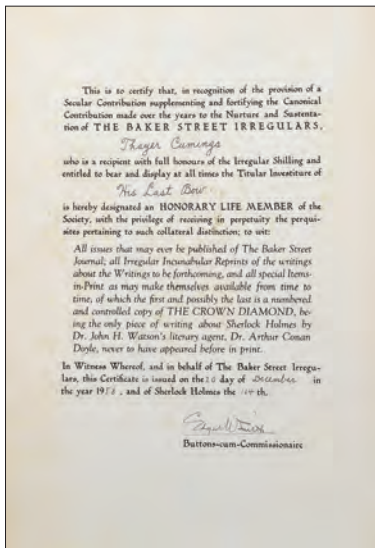 This is to certify that, in recognition of the provision of a
Secular Contribution supplementing and fortifying the Canonical
Contribution made over the years to the Nurture and Sustenta-
tion of THE BAKER STREET IRREGULARS,
Thayer Cumings
who is a recipient with full honours of the Irregular Shilling and
entitled to bear and display at all times the Titular Investiture of
His Last Bow
is hereby designated an HONORARY LIFE MEMBER of the
Society, with the privilege of receiving in perpetuity the perqui-
sites pertaining to such collateral distinction; to wit:
All issues that may ever be published of The Baker Street
Journal; all Irregular Incunabular Reprints of the writings
about the Writings to be forthcoming, and all special Items-
in-Print as may make themselves available from time to
time, of which the first and possibly the last is a numbered
and controlled copy of THE CROWN DIAMOND, be-
ing the only piece of writing about Sherlock Holmes by
Dr. John H. Watson's literary agent, Dr. Arthur Conan
Doyle, never to have appeared before in print.
In Witness Whereof, and in behalf of The Baker Street Irregu-
lars, this Certificate is issued on the day of December in
the year 1958, and of Sherlock Holmes the th.
Edgar W. Smith
Buttons-cum-Commissionaire